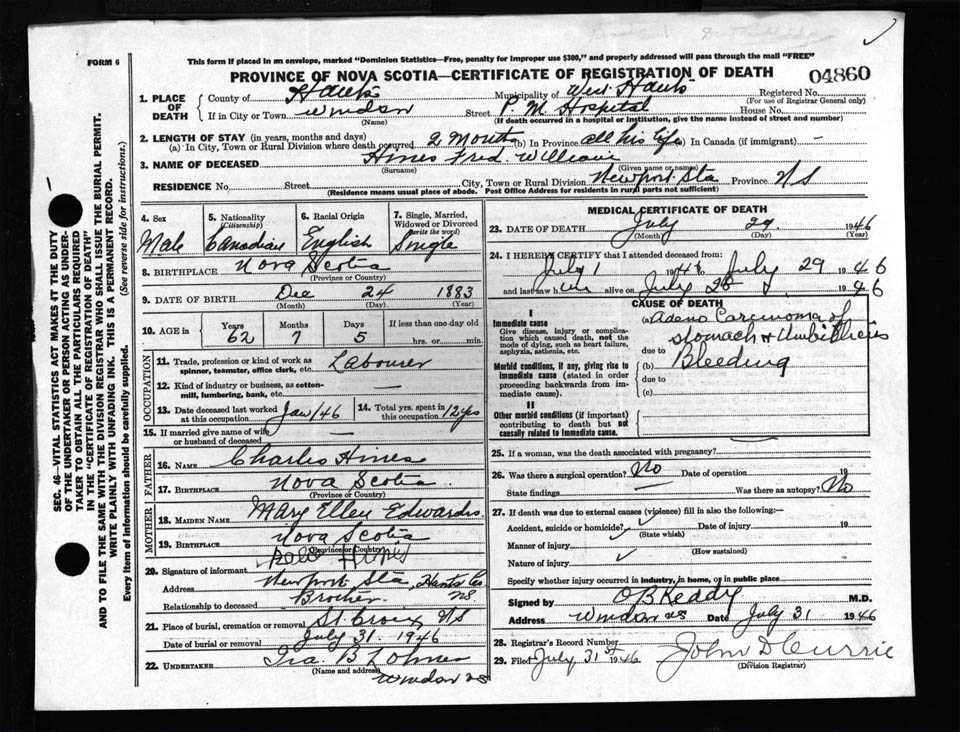 FORM 6
This form if placed in an envelope, marked "Dominion Statistics—Free, penalty for improper use $300," and properly addressed will pass through the mail "FREE"
PROVINCE OF NOVA SCOTIA—CERTIFICATE OF REGISTRATION OF DEATH
04860
1. PLACE OF DEATH County of Hants Municipality of West Hants Registered No.
(For use of Registrar General only)
If in City or Town Windsor Street P. M. Hospital House No.
(Name) (If death occurred in a hospital or institution, give the name instead of street and number)
2. LENGTH OF STAY (in years, months and days)
(a) In City, Town or Rural Division where death occurred 2 Months (b) In Province all his life (c) In Canada (if immigrant) —
3. NAME OF DECEASED Hines Fred William
(Surname) (Given name or names)
RESIDENCE No. Street City, Town or Rural Division Newport Sta Province NS
(Residence means usual place of abode. Post Office Address for residents in rural parts not sufficient)
4. Sex Male
5. Nationality (Citizenship) Canadian
6. Racial Origin English
7. Single, Married, Widowed or Divorced (write the word) Single
8. BIRTHPLACE Nova Scotia
(Province or Country)
9. DATE OF BIRTH Dec 24 1883
(Month) (Day) (Year)
10. AGE in Years Months Days If less than one day old
62 7 5 hrs. or min.
OCCUPATION
11. Trade, profession or kind of work as spinner, teamster, office clerk, etc. Labourer
12. Kind of industry or business, as cotton-mill, lumbering, bank, etc. —
13. Date deceased last worked at this occupation Jan/46
14. Total yrs. spent in this occupation 12 yrs
15. If married give name of wife or husband of deceased —
FATHER
16. NAME Charles Hines
17. BIRTHPLACE Nova Scotia
(Province or Country)
MOTHER
18. MAIDEN NAME Mary Ellen Edwards
19. BIRTHPLACE Nova Scotia
(Province or Country)
20. Signature of informant Hines
Address Newport Sta, Hants Co. NS
Relationship to deceased Brother
21. Place of burial, cremation or removal St. Croix NS
Date of burial or removal July 31. 1946
22. UNDERTAKER Ira. B Lohnes
(Name and address) Windsor NS
MEDICAL CERTIFICATE OF DEATH
23. DATE OF DEATH July 29. 1946
(Month) (Day) (Year)
24. I HEREBY CERTIFY that I attended deceased from:
July 1 1946 to July 29 1946
and last saw him alive on July 28 1946
CAUSE OF DEATH
I
Immediate cause
Give disease, injury or complication which caused death, not the mode of dying, such as heart failure, asphyxia, asthenia, etc.
(a) Adeno Carcinoma of stomach & Umbilicus
due to
Morbid conditions, if any, giving rise to immediate cause (stated in order proceeding backwards from immediate cause).
(b) Bleeding
due to
(c)
II
Other morbid conditions (if important) contributing to death but not causally related to immediate cause.
25. If a woman, was the death associated with pregnancy?
26. Was there a surgical operation? No Date of operation 19
State findings — Was there an autopsy? No
27. If death was due to external causes (violence) fill in also the following:—
Accident, suicide or homicide? Date of injury 19
(State which)
Manner of injury
(How sustained)
Nature of injury
Specify whether injury occurred in industry, in home, or in public place
Signed by O B Keddy M.D.
Address Windsor NS Date July 31 1946
28. Registrar's Record Number
29. Filed July 31st 1946 John D Currie
(Division Registrar)
SEC. 46—VITAL STATISTICS ACT MAKES IT THE DUTY
OF THE UNDERTAKER OR PERSON ACTING AS UNDER-
TAKER TO OBTAIN ALL THE PARTICULARS REQUIRED
IN THE "CERTIFICATE OF REGISTRATION OF DEATH"
AND TO FILE THE SAME WITH THE DIVISION REGISTRAR WHO SHALL ISSUE THE BURIAL PERMIT.
WRITE PLAINLY WITH UNFADING INK. THIS IS A PERMANENT RECORD.
Every item of information should be carefully supplied. (See reverse side for instructions.)